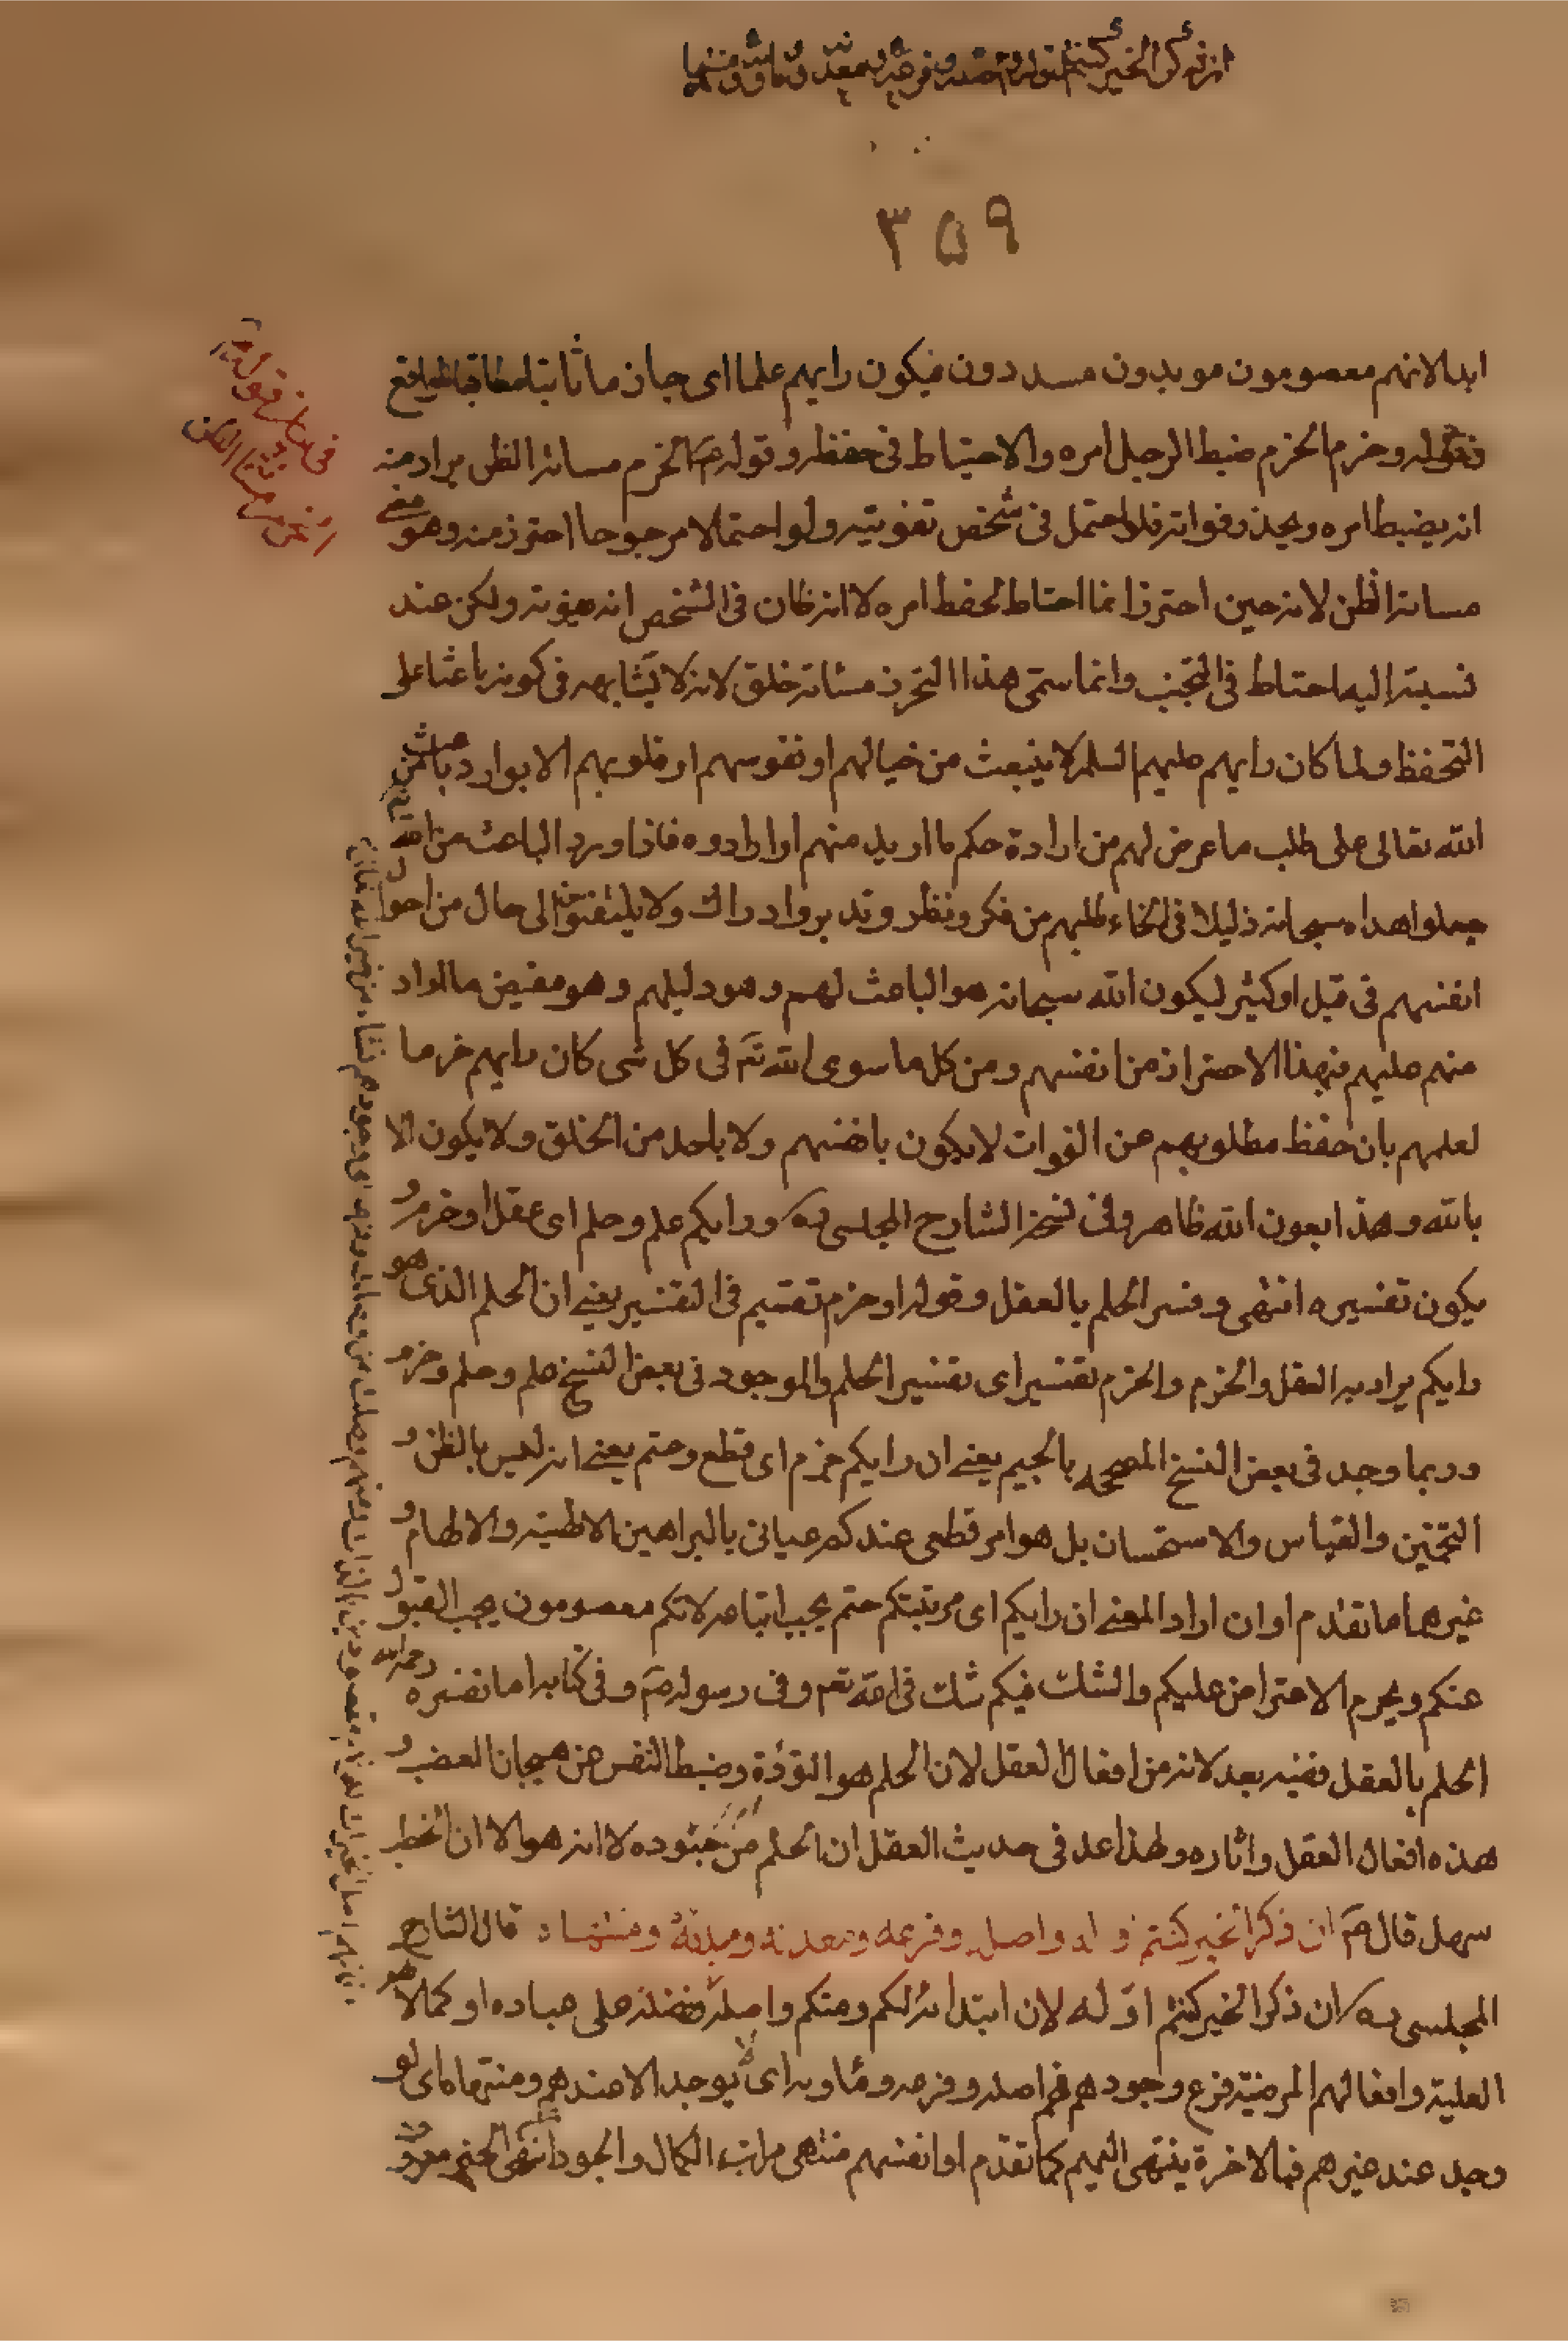 ان ذكر الخير كنتم اوله واصله وفرعه ومعدنه وماويه ومنتهاه
٣٥٩
ابدا لانهم معصومون مويدون مسددون فيكون رايهم علما اى جازما ثابتا مطابقا للواقع
وقوله وحزم الحزم ضبط الرجل امره والاحتياط فى حفظه وقوله الحزم مسائة الظن يراد منه
انه يضبط امره ويحذر فواته فلو احتمل فى شخص تفويته ولو احتمالا مرجوحا احترز منه وهو معنى
مسائة الظن لانه حين احترز انما احتاط لحفظ امره لا انه ظان فى الشخص انه يفوته ولكن عند
نسبته اليه احتاط فى التجنب وانما سمى هذا التحرز مسائة خلق لانه لا يشابهه فى كونه باعثا على
التحفظ ولما كان رايهم عليهم السلم لا ينبعث من خيالهم او نفوسهم او قلوبهم الا بوارد باعث من
الله تعالى على طلب ما عرض لهم من ارادة حكم ما اريد منهم او ارادوه فاذا ورد الباعث من الله
جعلوا هداه سبحانه دليلا فى انحاء طلبهم من فكر ونظر وتدبر وادراك ولا يلتفتون الى حال من احوال
انفسهم فى قليل او كثير ليكون الله سبحانه هو الباعث لهم وهو دليلهم وهو مفيض ما اراد
منهم عليهم فبهذا الاحتراز من انفسهم ومن كل ما سوى الله تع فى كل شى كان رايهم حزما
لعلمهم بان حفظ مطلوبهم عن الفوات لا يكون بانفسهم ولا باحد من الخلق ولا يكون الا
بالله وهذا بعون الله ظاهر وفى نسخة الشارح المجلسى ره ورايكم علم وحلم اى عقل او حزم و
يكون تفسيره انتهى وفسر الحلم بالعقل وقوله او حزم تقسيم فى التفسير يعنى ان الحلم الذى هو
رايكم يراد به العقل والحزم والحزم تفسير اى تفسير الحلم والموجود فى بعض النسخ علم وحلم وحزم
وربما وجد فى بعض النسخ المصححه بالجيم يعنى ان رايكم جزم اى قطع وحتم يعنى انه ليس بالظن و
التخمين والقياس والاستحسان بل هو امر قطعى عندكم عيانى بالبراهين الالهيه والالهام و
غيرهما مما تقدم او ان المراد المعنى ان رايكم اى مرتبتكم حتم يجب اتباعه لانكم معصومون يجب القبول
عنكم ويحرم الاعتراض عليكم والشك فيكم شك فى الله تعم وفى رسوله ص وفى كتابه اما تفسيره رحمه الله
الحلم بالعقل ففيه بعد لانه من افعال العقل لان الحلم هو التؤدة وضبط النفس عن هيجان الغضب و
هذه افعال العقل واثاره ولهذا عد فى حديث العقل ان الحلم من جنوده لا انه هو الا ان الخطب
سهل قال ع ان ذكر الخير كنتم اوله واصله وفرعه ومعدنه وماويه ومنتهاه قال الشارح
المجلسى ره ان ذكر الخير كنتم اوله لان ابتدائه لكم ومنكم واصله ففضله على عباده او كمالاتهم
العلية وافعالهم المرضية فرع وجودهم فهم اصله وفرعه وماويه اى لا يوجد الا عندهم ومنتهاه اى لو
وجد عند غيرهم فبالاخرة ينتهى اليهم كما تقدم او انفسهم منتهى مراتب الكمال والجود انتهى الخير معروف